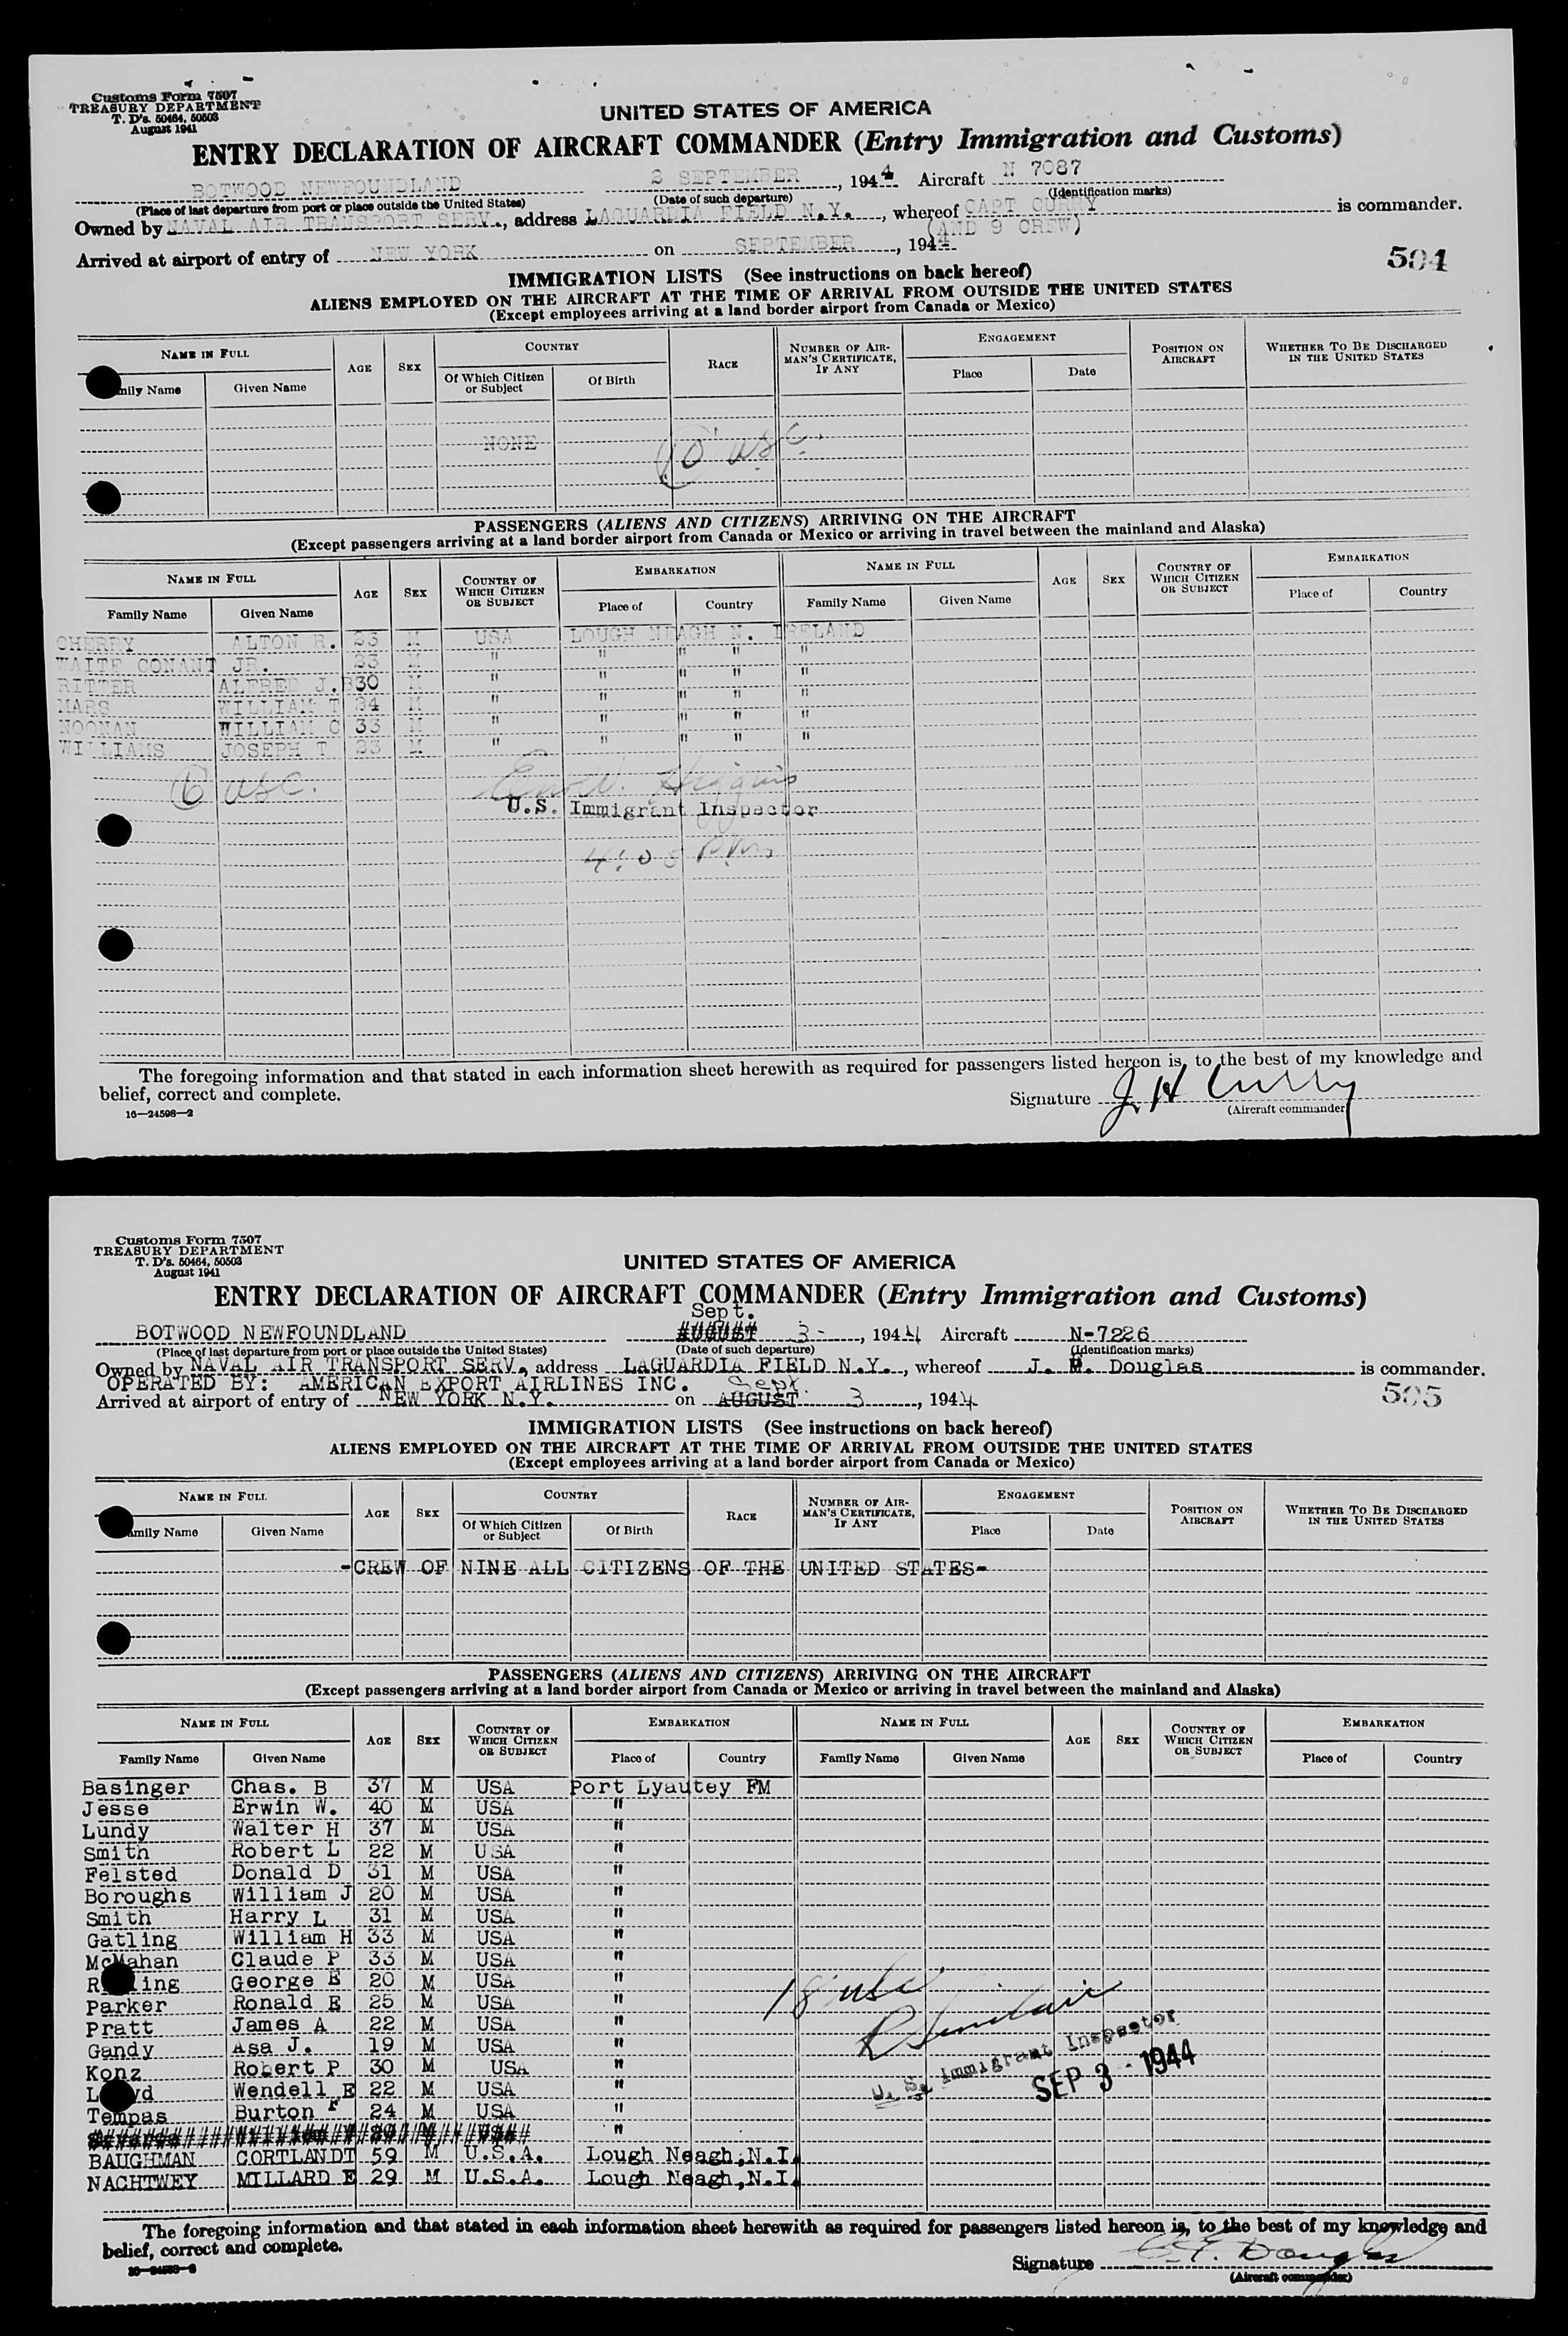 Customs Form 7507
TREASURY DEPARTMENT
T. D's. 50464, 50503
August 1941
UNITED STATES OF AMERICA
ENTRY DECLARATION OF AIRCRAFT COMMANDER (Entry Immigration and Customs)
BOTWOOD NEWFOUNDLAND SEPTEMBER, 1944 Aircraft N 7087
(Place of last departure from port or place outside the United States) (Date of such departure) (Identification marks)
Owned by NAVAL AIR TRANSPORT SERV., address LAGUARDIA FIELD N.Y., whereof CAPT CURRY is commander.
(AND 9 CREW)
Arrived at airport of entry of NEW YORK on SEPTEMBER, 1944
504
IMMIGRATION LISTS (See instructions on back hereof)
ALIENS EMPLOYED ON THE AIRCRAFT AT THE TIME OF ARRIVAL FROM OUTSIDE THE UNITED STATES
(Except employees arriving at a land border airport from Canada or Mexico)
NAME IN FULL AGE SEX COUNTRY RACE NUMBER OF AIRMAN'S CERTIFICATE, IF ANY ENGAGEMENT POSITION ON AIRCRAFT WHETHER TO BE DISCHARGED IN THE UNITED STATES
mily Name Given Name Of Which Citizen or Subject Of Birth Place Date
NONE
10 USC.
PASSENGERS (ALIENS AND CITIZENS) ARRIVING ON THE AIRCRAFT
(Except passengers arriving at a land border airport from Canada or Mexico or arriving in travel between the mainland and Alaska)
NAME IN FULL AGE SEX COUNTRY OF WHICH CITIZEN OR SUBJECT EMBARKATION NAME IN FULL AGE SEX COUNTRY OF WHICH CITIZEN OR SUBJECT EMBARKATION
Family Name Given Name Place of Country Family Name Given Name Place of Country
CHERRY ALTON R. M USA LOUGH NEAGH N. IRELAND
WAITE CONANT JR. M " " " " "
RITTER ALFRED J. 30 M " " " " "
MARS WILLIAM T 34 M " " " " "
NOONAN WILLIAM C 33 M " " " " "
WILLIAMS JOSEPH T M " " " " "
6 USC.
Higgins
U.S. Immigrant Inspector
4:05 P.M.
The foregoing information and that stated in each information sheet herewith as required for passengers listed hereon is, to the best of my knowledge and
belief, correct and complete.
Signature J H Curry
(Aircraft commander)
16—24598—2
Customs Form 7507
TREASURY DEPARTMENT
T. D's. 50464, 50503
August 1941
UNITED STATES OF AMERICA
ENTRY DECLARATION OF AIRCRAFT COMMANDER (Entry Immigration and Customs)
Sept.
BOTWOOD NEWFOUNDLAND AUGUST 3-, 1944 Aircraft N-7226
(Place of last departure from port or place outside the United States) (Date of such departure) (Identification marks)
Owned by NAVAL AIR TRANSPORT SERV, address LAGUARDIA FIELD N.Y., whereof J. Douglas is commander.
OPERATED BY: AMERICAN EXPORT AIRLINES INC. Sept.
Arrived at airport of entry of NEW YORK N.Y. on AUGUST 3, 1944
505
IMMIGRATION LISTS (See instructions on back hereof)
ALIENS EMPLOYED ON THE AIRCRAFT AT THE TIME OF ARRIVAL FROM OUTSIDE THE UNITED STATES
(Except employees arriving at a land border airport from Canada or Mexico)
NAME IN FULL AGE SEX COUNTRY RACE NUMBER OF AIRMAN'S CERTIFICATE, IF ANY ENGAGEMENT POSITION ON AIRCRAFT WHETHER TO BE DISCHARGED IN THE UNITED STATES
mily Name Given Name Of Which Citizen or Subject Of Birth Place Date
-CREW OF NINE ALL CITIZENS OF THE UNITED STATES-
PASSENGERS (ALIENS AND CITIZENS) ARRIVING ON THE AIRCRAFT
(Except passengers arriving at a land border airport from Canada or Mexico or arriving in travel between the mainland and Alaska)
NAME IN FULL AGE SEX COUNTRY OF WHICH CITIZEN OR SUBJECT EMBARKATION NAME IN FULL AGE SEX COUNTRY OF WHICH CITIZEN OR SUBJECT EMBARKATION
Family Name Given Name Place of Country Family Name Given Name Place of Country
Basinger Chas. B 37 M USA Port Lyautey FM
Jesse Erwin W. 40 M USA "
Lundy Walter H 37 M USA "
Smith Robert L 22 M USA "
Felsted Donald D 31 M USA "
Boroughs William J 20 M USA "
Smith Harry L 31 M USA "
Gatling William H 33 M USA "
McMahan Claude P 33 M USA "
R ing George E 20 M USA "
Parker Ronald E 25 M USA "
Pratt James A 22 M USA "
Gandy Asa J. 19 M USA "
Konz Robert P 30 M USA "
L yd Wendell E 22 M USA "
Tempas Burton F 24 M USA "
"
BAUGHMAN CORTLANDT 59 M U.S.A. Lough Neagh,N.I.
NACHTWEY MILLARD E 29 M U.S.A. Lough Neagh,N.I.
18 USC
R Sinclair
U. S. Immigrant Inspector
SEP 3 - 1944
The foregoing information and that stated in each information sheet herewith as required for passengers listed hereon is, to the best of my knowledge and
belief, correct and complete.
Signature Douglas
(Aircraft commander)